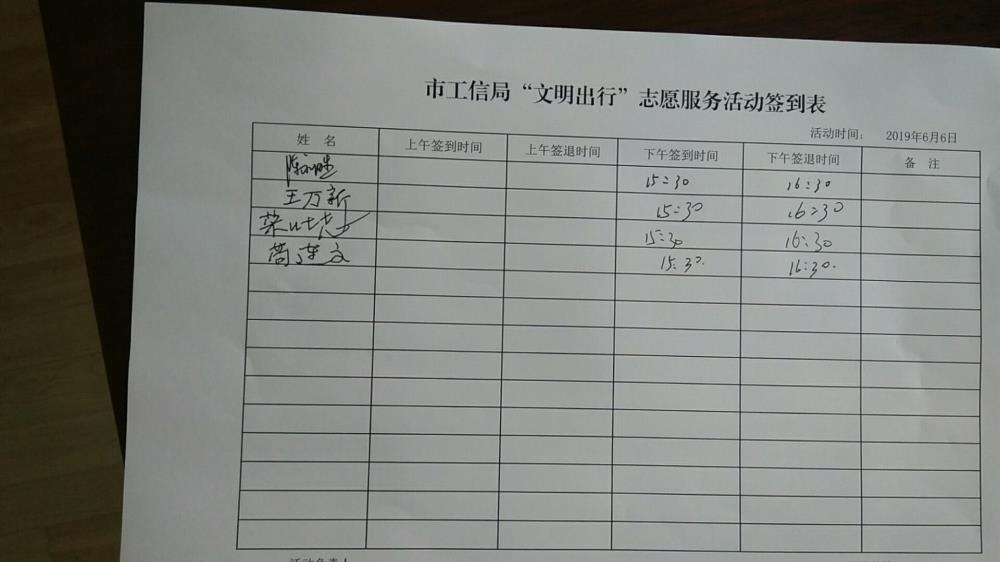 市工信局“文明出行”志愿服务活动签到表
活动时间： 2019年6月6日
姓 名 上午签到时间 上午签退时间 下午签到时间 下午签退时间 备 注
15:30 16:30
王万新 15:30 16:30
15:30 16:30
15:30. 16:30.